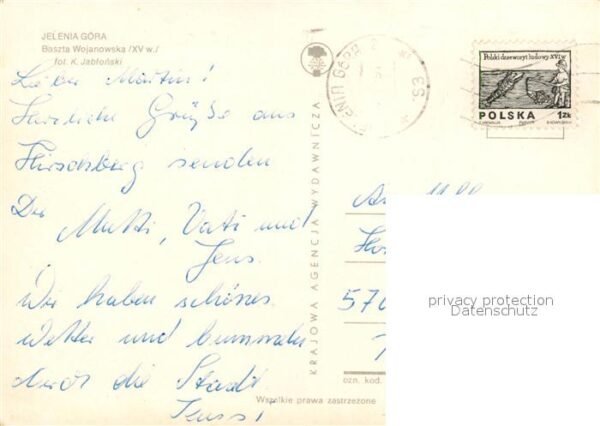 JELENIA GÓRA
Baszta Wojanowska /XV w./
fot. K. Jabłoński
Lieber Martin!
Herzliche Grüße aus
Hirschberg senden
Dir
Mutti, Vati und
Jens.
Wir haben schönes
Wetter und bummeln
durch die Stadt
Tschüssi
KRAJOWA AGENCJA WYDAWNICZA
JELENIA GÓRA 2
Polski drzeworyt ludowy XVI w.
POLSKA 1zł
An
570
ozn. kod.
Wszelkie prawa zastrzeżone
privacy protection
Datenschutz